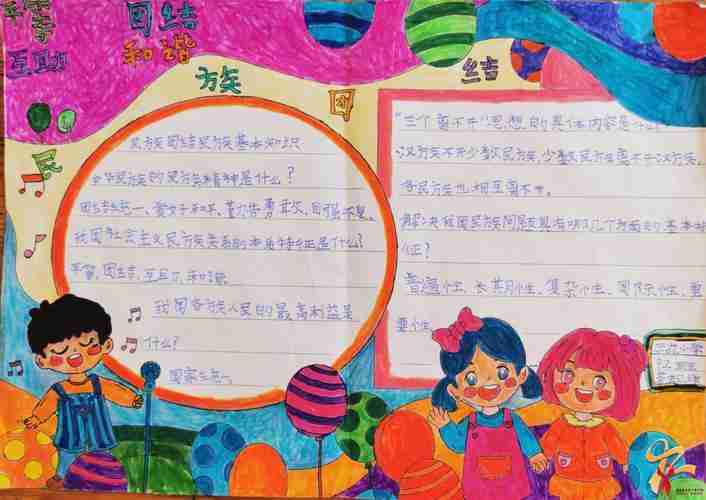 平等
互助
团结
和谐
民族团结
民族团结民族基本知识
中华民族的民族精神是什么？
团结统一、爱好和平、勤劳勇敢、自强不息。
我国社会主义民族关系的本质特征是什么？
平等、团结、互助、和谐。
我国各族人民的最高利益是
什么？
国家统一
“三个离不开”思想的具体内容是什么
汉族离不开少数民族，少数民族离不开汉族，
各民族也相互离不开。
解决我国民族问题具有哪几个方面的基本特
征？
普遍性、长期性、复杂性、国际性、重
要性